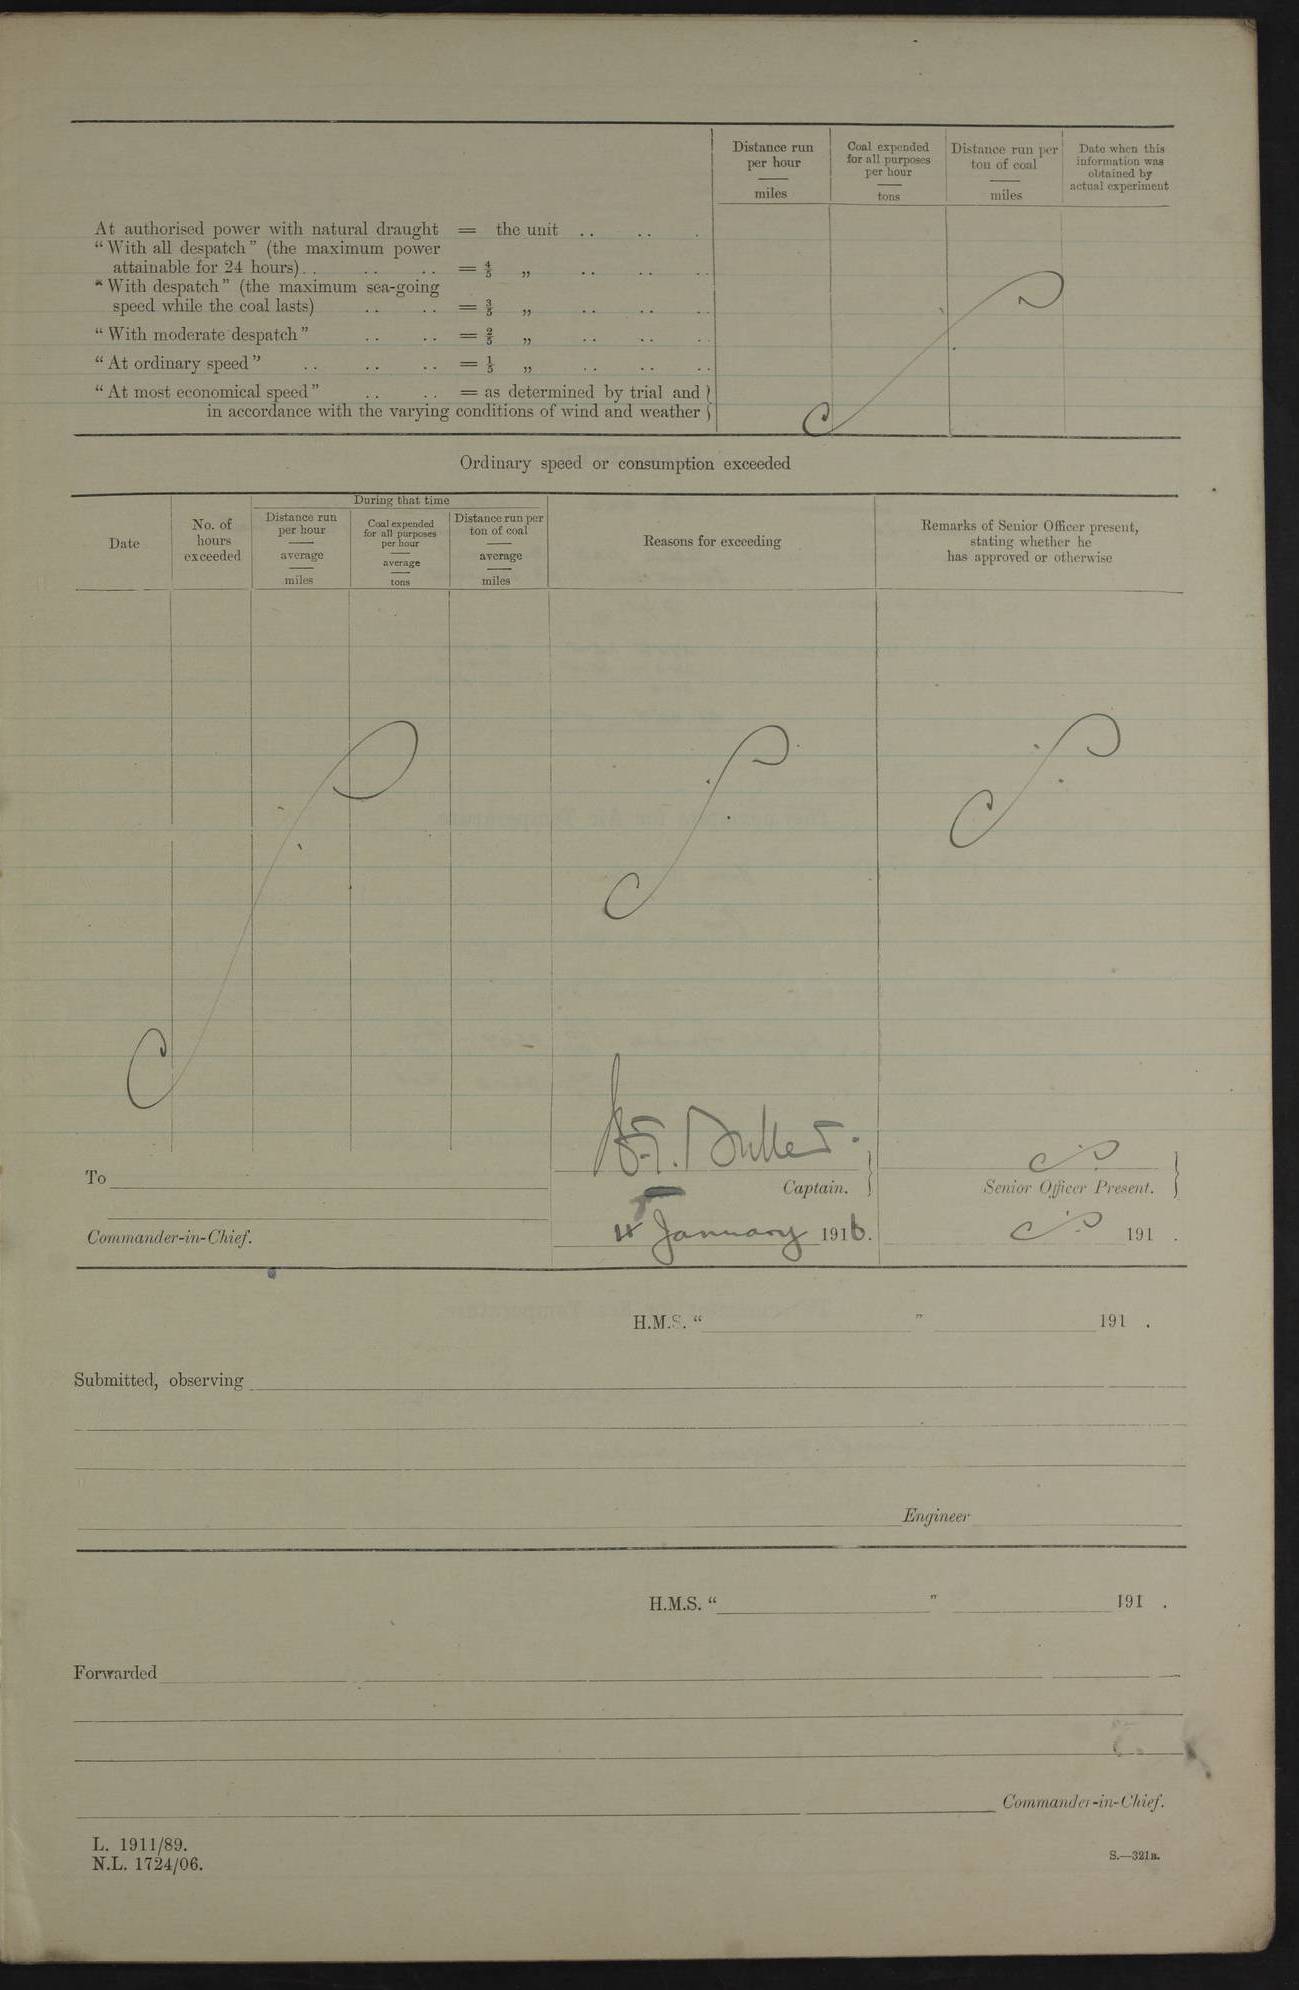 Distance run per hour — miles
Coal expended for all purposes per hour — tons
Distance run per ton of coal — miles
Date when this information was obtained by actual experiment
At authorised power with natural draught = the unit .. .. .
“With all despatch” (the maximum power
attainable for 24 hours). . .. .. = 4/5 „ .. .. ..
“With despatch” (the maximum sea-going
speed while the coal lasts) .. .. = 3/5 „ .. .. ..
“With moderate despatch” .. .. = 2/5 „ .. .. ..
“At ordinary speed” .. .. .. = 1/5 „ .. .. ..
“At most economical speed” .. .. = as determined by trial and }
in accordance with the varying conditions of wind and weather }
Ordinary speed or consumption exceeded
Date
No. of hours exceeded
During that time
Distance run per hour — average — miles
Coal expended for all purposes per hour — average — tons
Distance run per ton of coal — average — miles
Reasons for exceeding
Remarks of Senior Officer present, stating whether he has approved or otherwise
To
Captain. }
Senior Officer Present. }
Commander-in-Chief.
January 1916.
191 .
H.M.S. “ ” 191 .
Submitted, observing
Engineer
H.M.S. “ ” 191 .
Forwarded
Commander-in-Chief.
L. 1911/89.
N.L. 1724/06.
S.—321B.